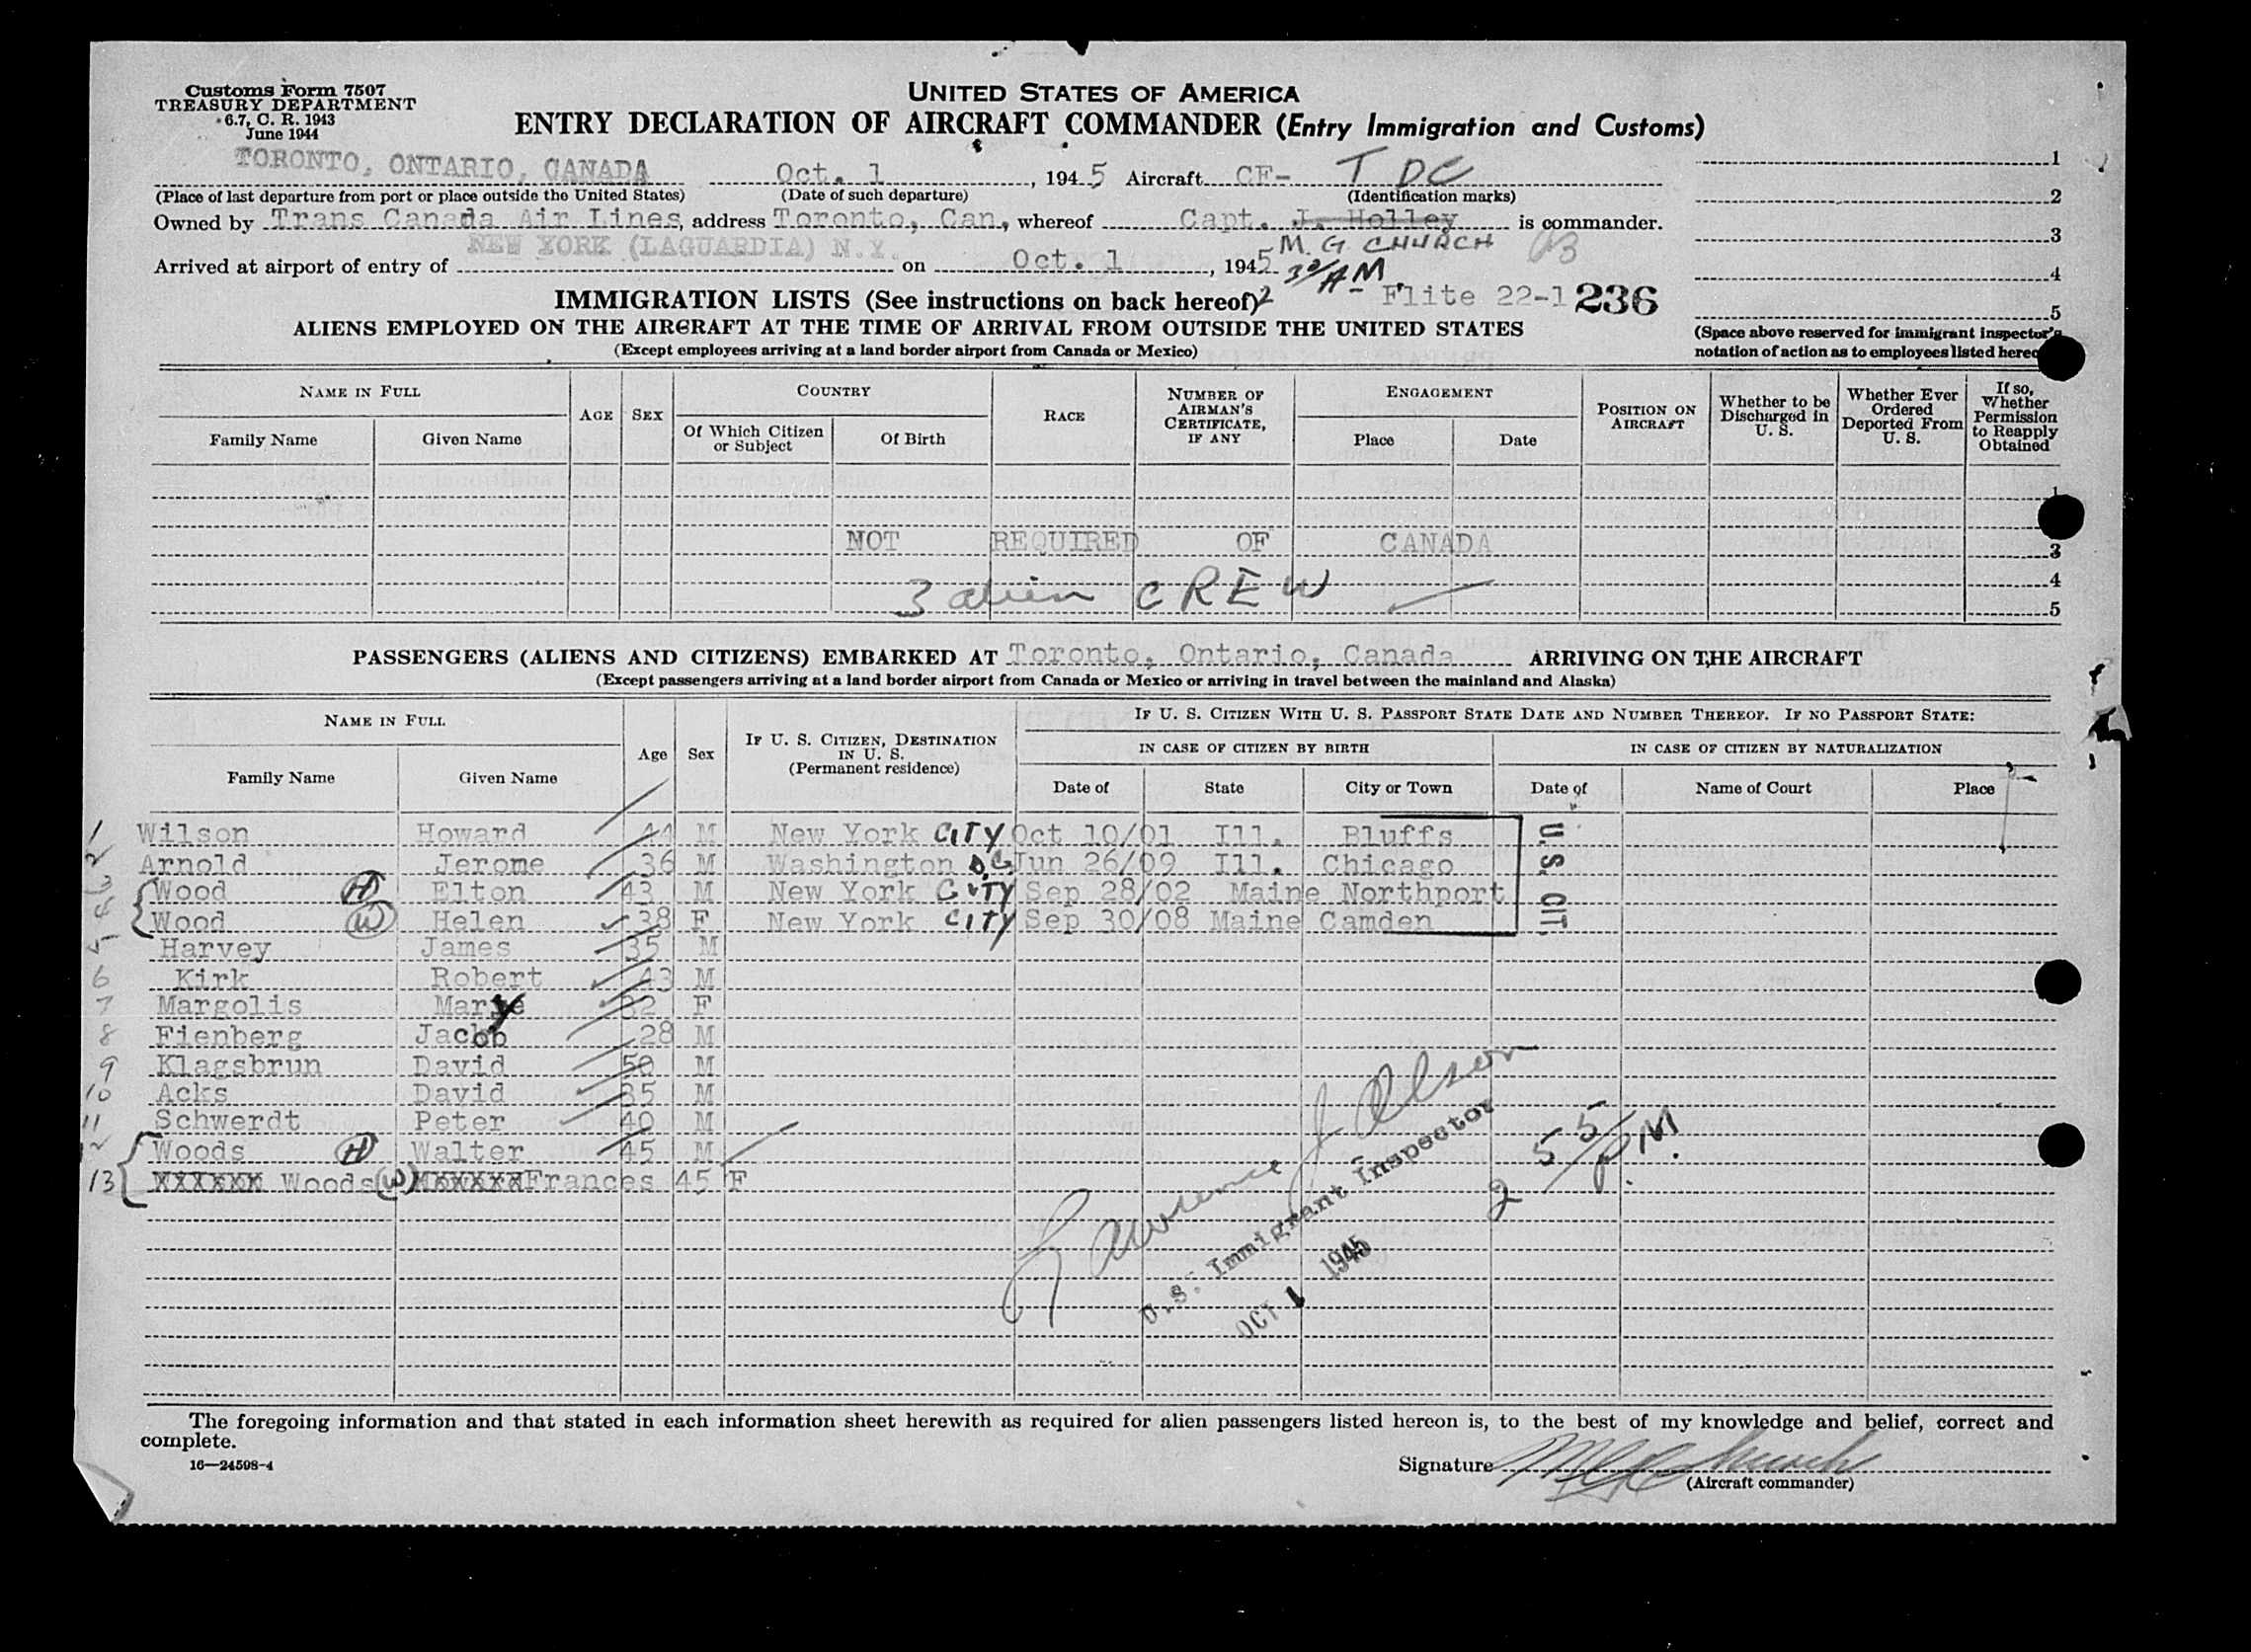 Customs Form 7507
TREASURY DEPARTMENT
6.7, C. R. 1943
June 1944
UNITED STATES OF AMERICA
ENTRY DECLARATION OF AIRCRAFT COMMANDER (Entry Immigration and Customs)
TORONTO, ONTARIO, CANADA Oct. 1, 1945 Aircraft CF- TDC
(Place of last departure from port or place outside the United States) (Date of such departure) (Identification marks)
Owned by Trans Canada Air Lines, address Toronto, Can, whereof Capt. J. Holley is commander.
M. G CHURCH
NEW YORK (LAGUARDIA) N.Y.
Arrived at airport of entry of on Oct. 1, 1945
IMMIGRATION LISTS (See instructions on back hereof) Flite 22-1 236
ALIENS EMPLOYED ON THE AIRCRAFT AT THE TIME OF ARRIVAL FROM OUTSIDE THE UNITED STATES
(Except employees arriving at a land border airport from Canada or Mexico)
1
2
3
4
5
(Space above reserved for immigrant inspector's
notation of action as to employees listed hereon
NAME IN FULL
Family Name Given Name
AGE SEX
COUNTRY
Of Which Citizen or Subject Of Birth
RACE
NUMBER OF AIRMAN'S CERTIFICATE, IF ANY
ENGAGEMENT
Place Date
POSITION ON AIRCRAFT
Whether to be Discharged in U. S.
Whether Ever Ordered Deported From U. S.
If so, Whether Permission to Reapply Obtained
1
NOT REQUIRED OF CANADA 3
4
3 alien CREW 5
PASSENGERS (ALIENS AND CITIZENS) EMBARKED AT Toronto, Ontario, Canada ARRIVING ON THE AIRCRAFT
(Except passengers arriving at a land border airport from Canada or Mexico or arriving in travel between the mainland and Alaska)
NAME IN FULL
Family Name Given Name
Age Sex
IF U. S. CITIZEN, DESTINATION IN U. S. (Permanent residence)
IF U. S. CITIZEN WITH U. S. PASSPORT STATE DATE AND NUMBER THEREOF. IF NO PASSPORT STATE:
IN CASE OF CITIZEN BY BIRTH IN CASE OF CITIZEN BY NATURALIZATION
Date of State City or Town Date of Name of Court Place
1 Wilson Howard 44 M New York CITY Oct 10/01 Ill. Bluffs
2 Arnold Jerome 36 M Washington D.C Jun 26/09 Ill. Chicago
3 Wood H Elton 43 M New York CITY Sep 28/02 Maine Northport
4 Wood W Helen 38 F New York CITY Sep 30/08 Maine Camden
U. S. CIT.
5 Harvey James 35 M
6 Kirk Robert 43 M
7 Margolis Mary 32 F
8 Fienberg Jacob 28 M
9 Klagsbrun David 50 M
10 Acks David 35 M
11 Schwerdt Peter 40 M
12 Woods H Walter 45 M
13 XXXXXX Woods (W) Frances 45 F
Lawrence J Olson
U.S. Immigrant Inspector
OCT 1 1945
2 55 P.M.
The foregoing information and that stated in each information sheet herewith as required for alien passengers listed hereon is, to the best of my knowledge and belief, correct and
complete.
16—24598-4
Signature M G Church
(Aircraft commander)